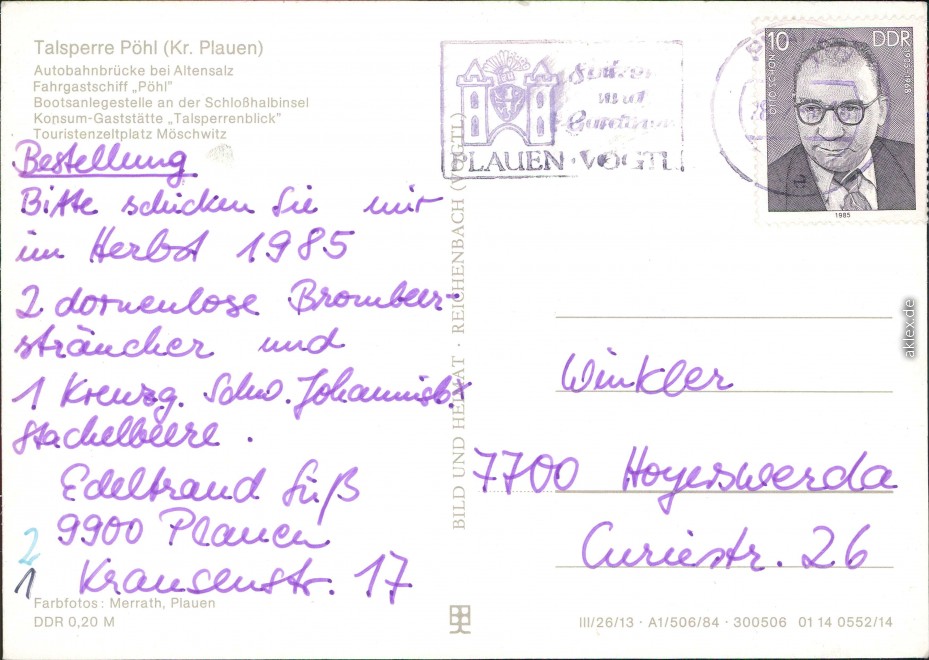 Talsperre Pöhl (Kr. Plauen)
Autobahnbrücke bei Altensalz
Fahrgastschiff „Pöhl"
Bootsanlegestelle an der Schloßhalbinsel
Konsum-Gaststätte „Talsperrenblick"
Touristenzeltplatz Möschwitz
Bestellung
Bitte schicken Sie mir
im Herbst 1985
2 dornenlose Brombeer-
sträucher und
1 Kreuzg. Schw. Johannisb. x
Stachelbeere.
Edeltraud Süß
9900 Plauen
Krausenstr. 17
2
1
Farbfotos: Merrath, Plauen
DDR 0,20 M
BILD UND HEIMAT · REICHENBACH (VOGTL)
PLAUEN · VOGTL.
10 DDR
OTTO SCHÖN
1905-1968
1985
Winkler
7700 Hoyerswerda
Curiestr. 26
III/26/13 · A1/506/84 · 300506 01 14 0552/14
aklex.de